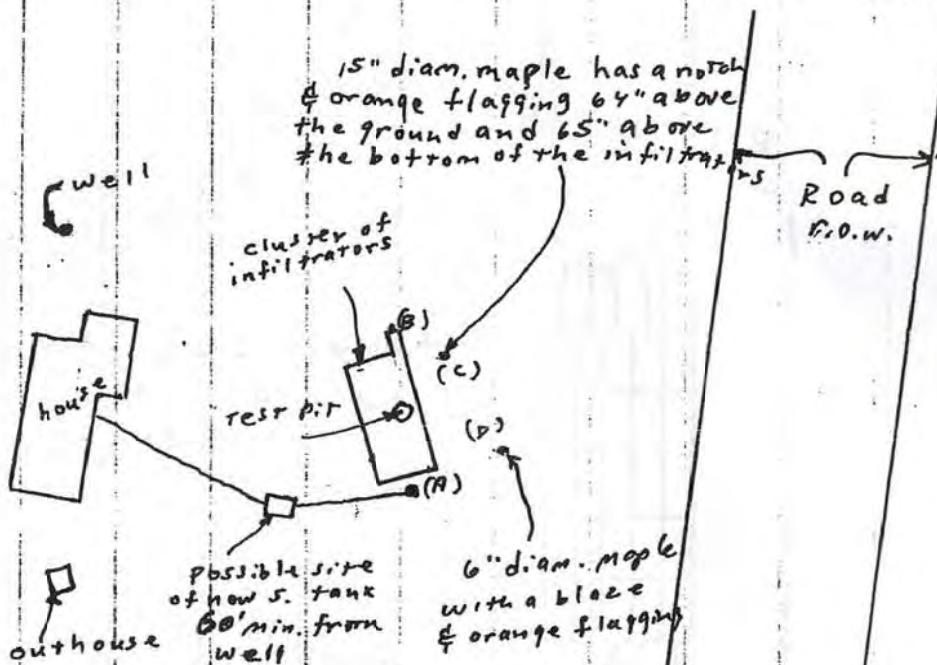 15" diam. maple has a notch
& orange flagging 64" above
the ground and 65" above
the bottom of the infiltrators
well
Road
r.o.w.
cluster of
infiltrators
(B)
(C)
house
test pit
(D)
(A)
possible site
of new s. tank
60' min. from
well
6" diam. maple
with a blaze
& orange flagging
outhouse